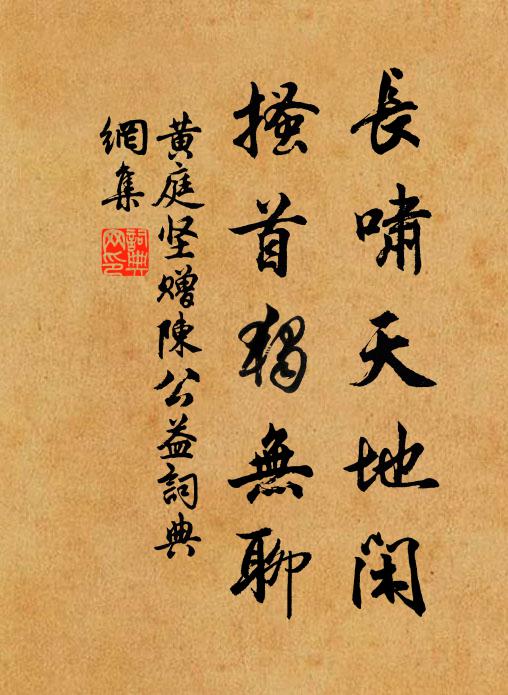 長嘯天地闲
搔首獨無聊
黄庭坚赠陳公益詞典
網集
詞典
网印